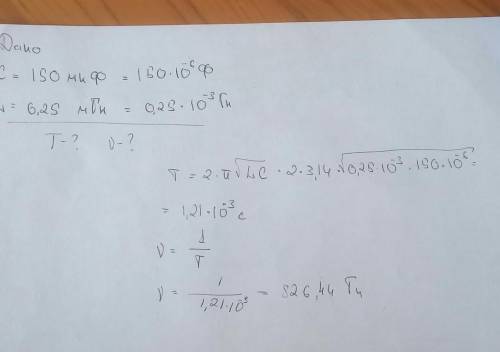 Дано
C = 150 мкФ = 150·10⁻⁶ Ф
L = 0,25 мГн = 0,25·10⁻³ Гн
T-? ν-?
T = 2·π√LC = 2·3,14·√0,25·10⁻³·150·10⁻⁶ =
= 1,21·10⁻³ с
ν = 1/T
ν = 1/1,21·10⁻³ = 826,44 Гц